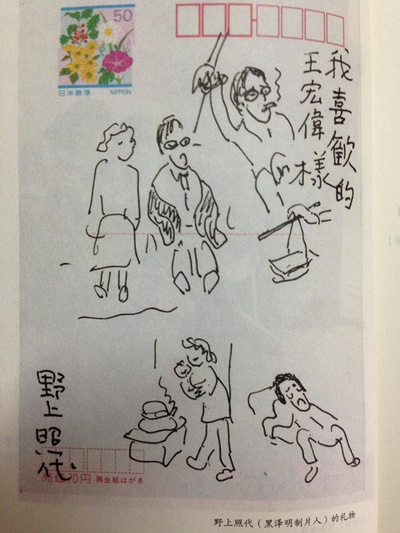 50
日本郵便 NIPPON
我喜歓的
王宏偉様
野上照代
70円 再生紙はがき
野上照代（黑泽明制片人）的礼物